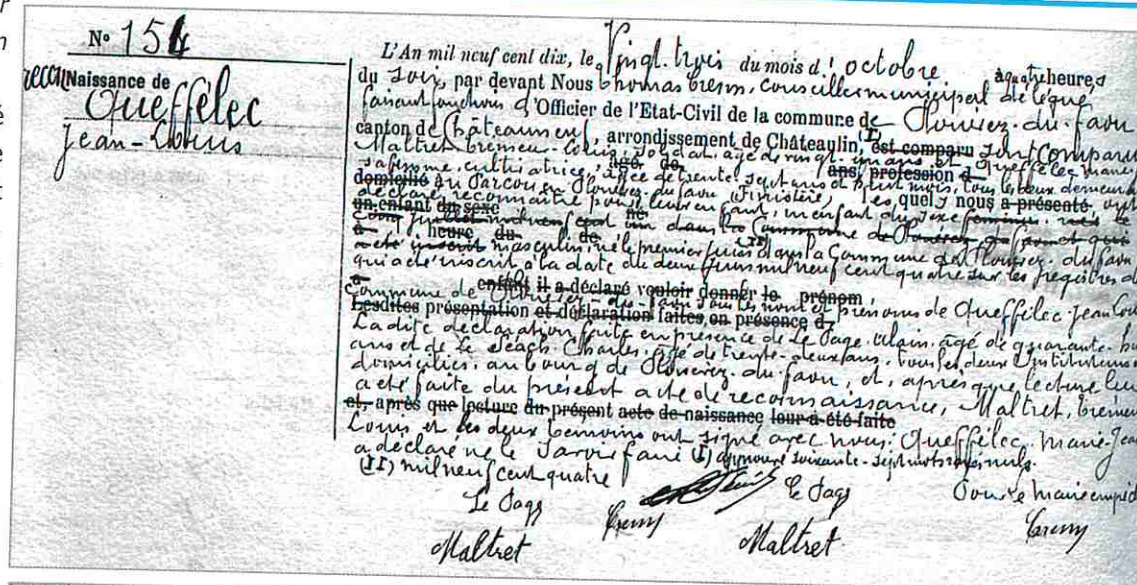 N° 154
reconNaissance de
Queffélec
Jean-Louis
L'An mil neuf cent dix, le Vingt. trois du mois d' octobre à quatre heures
du soir, par devant Nous Thomas conseiller municipal délégué
faisant fonctions d'Officier de l'Etat-Civil de la commune de Plounévez-du-faou
canton de Châteauneuf, arrondissement de Châteaulin, (I) est comparu sont comparus
Maltret Louis, soldat, âgé de vingt-un ans et Queffélec marie
âgé de ans, profession d
cultivatrice, âgée de trente-sept ans et huit mois, tous les deux demeurant
domicilié au en Plounévez-du-faou (Finistère), lesquels nous a présenté ont
déclaré reconnaître pour leur enfant, un enfant du sexe feminin, née le
un enfant du sexe né
mil neuf cent un dans la Commune de Plounévez du faou et qui
à heure du de
a été inscrit masculin, né le premier juin (II) dans la Commune de Plounévez-du-faou
qui a été inscrit à la date du deux Juin mil neuf cent quatre sur les registres de
enfant il a déclaré vouloir donner le prénom,
commune de Plounévez-du-faou sous les nom et prénoms de Queffélec jean Louis
Lesdites présentation et déclaration faites, en présence d
La dite déclaration faite en présence de Le Page Alain, âgé de quarante-
ans et de Le Séach Charles, âgé de trente-deux ans, tous les deux Instituteurs
domiciliés, au bourg de Plounévez-du-faou, et, après que lecture leur
a été faite du présent acte de reconnaissance, Maltret,
et, après que lecture du présent acte de naissance leur a été faite
Louis et les deux témoins ont signé avec nous. Queffélec marie-Jea
a déclaré ne le Savoir faire (I) approuvé soixante-sept mots rayés nuls.
(II) mil neuf cent quatre
Le Page Le Page Pour le maire empêché
Maltret Maltret